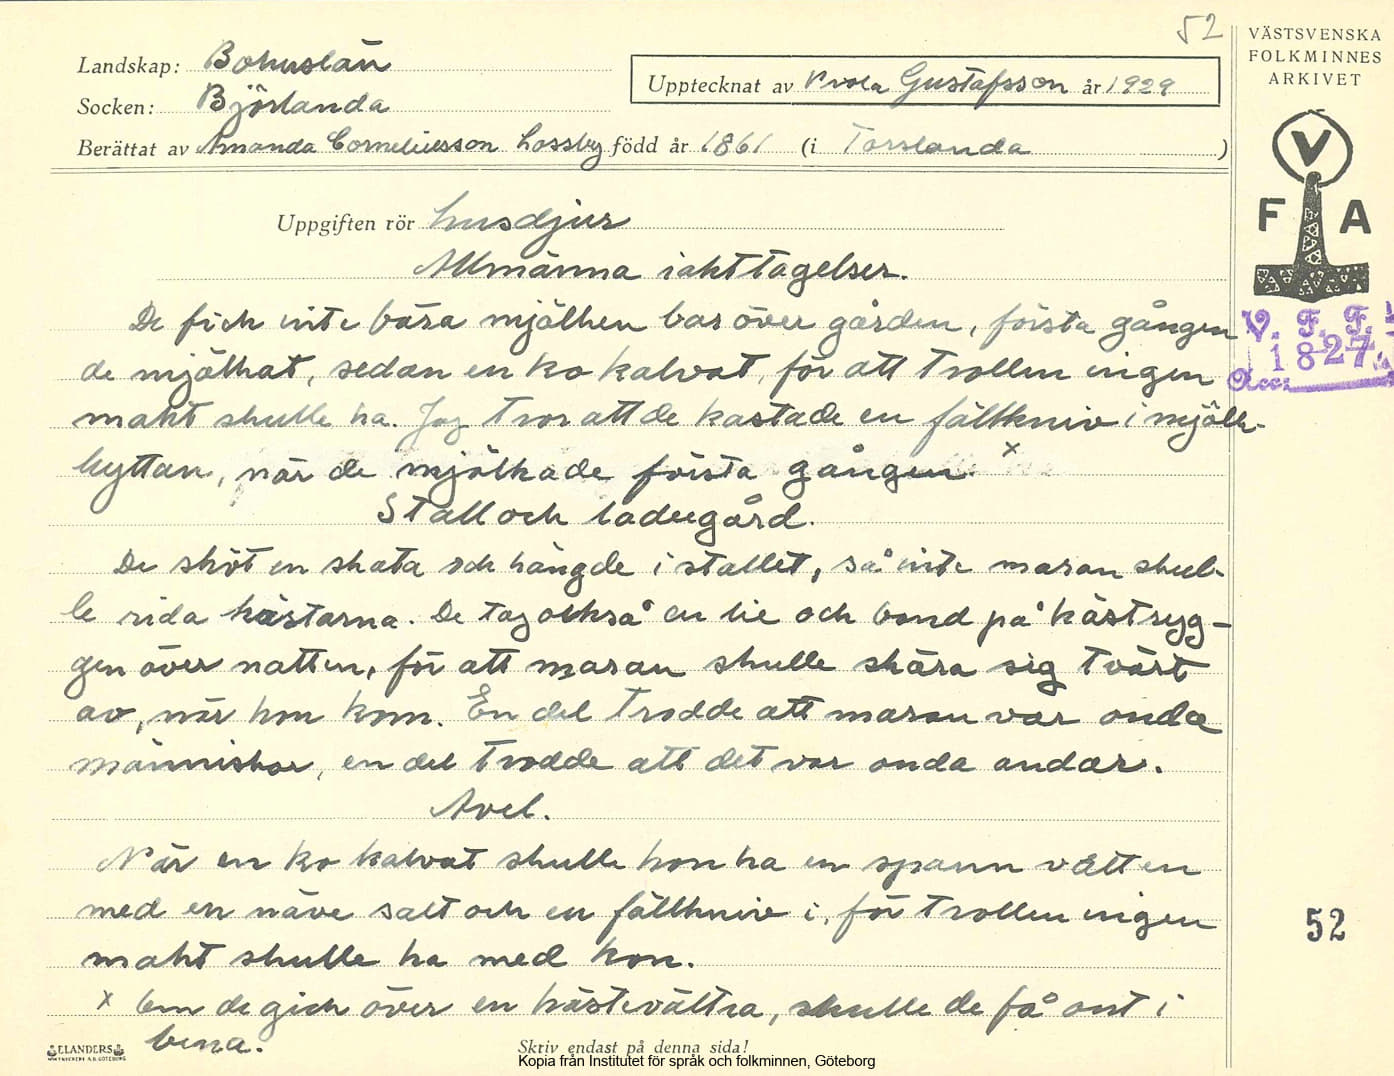 52
VÄSTSVENSKA
FOLKMINNES
ARKIVET
Landskap: Bohuslän
Upptecknat av Gustafsson år 1929
Socken: Björlanda
Berättat av Amanda Corneliusson Lossby född år 1861 (i Torslanda)
V
F A
V. F. F.
1827
Acc.
Uppgiften rör husdjur
Allmänna iakttagelser.
De fick inte bära mjölken bar över gården, första gången
de mjölkat, sedan en ko kalvat, för att trollen ingen
makt skulle ha. Jag tror att de kastade en fällkniv i mjölk-
byttan, när de mjölkade första gången. x
Stall och ladugård.
De sköt en skata och hängde i stallet, så inte maran skul-
le rida hästarna. De tog också en lie och bond på hästryg-
gen över natten, för att maran skulle skära sig tvärt
av, när hon kom. En del trodde att maran var onda
människor, en del trodde att det var onda andar.
Avel.
När en ko kalvat skulle hon ha en spann vatten
med en näve salt och en fällkniv i, för trollen ingen
makt skulle ha med kon.
52
x Om de gick över en hästevältra, skulle de få ont i
bena.
ELANDERS
Skriv endast på denna sida!
Kopia från Institutet för språk och folkminnen, Göteborg